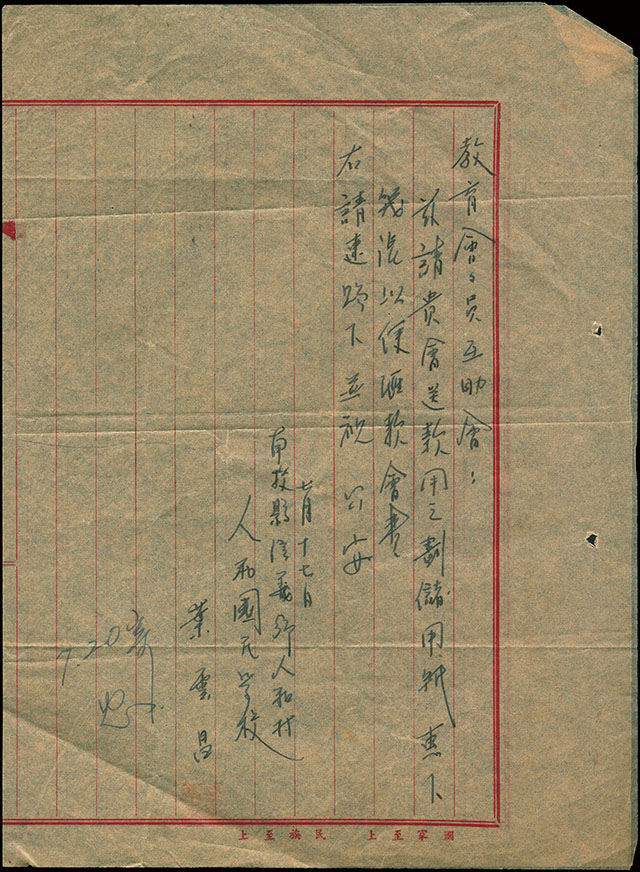 教育會々員互助會：
茲請貴會送款用之劃儲用紙惠下
幾張以便匯款會費
右請速賜下並祝　公安
七月十七日
南投縣信義鄉人和村
人和國民学校
葉雲昌
7.20
國家至上　民族至上